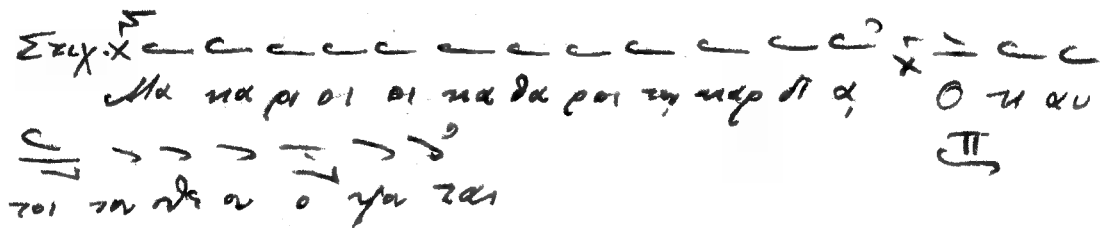 Στιχ. Μα κα ρι οι οι κα θα ροι τη καρ δι ᾳ Ο τι αυ
τοι τον Θε ον ο ψον ται